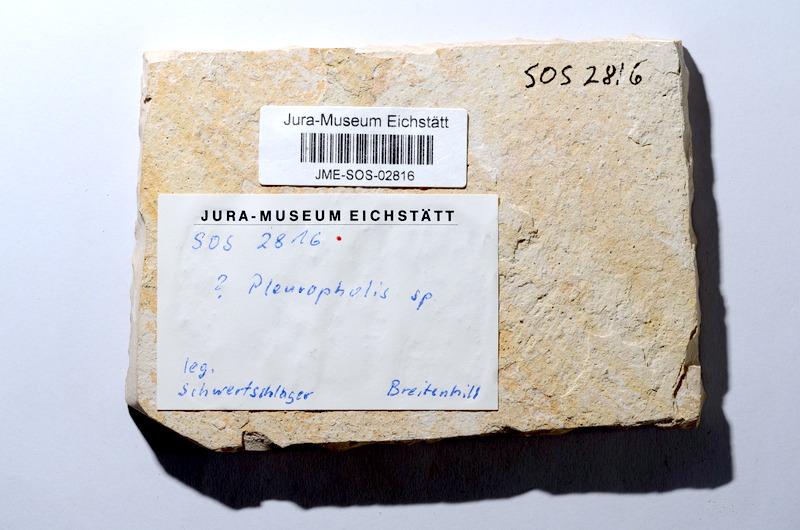 SOS 2816
Jura-Museum Eichstätt
JME-SOS-02816
JURA-MUSEUM EICHSTÄTT
SOS 2816
? Pleuropholis sp.
leg.
Schwertschlager Breitenhill